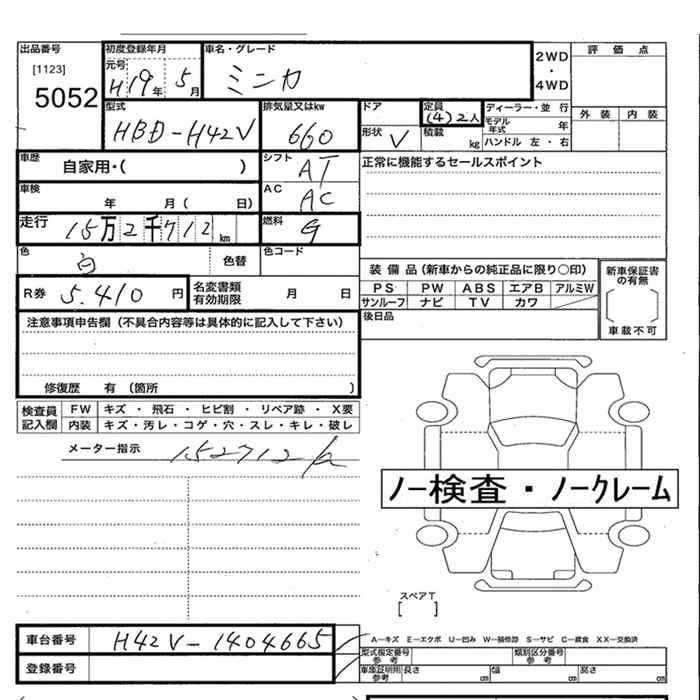 出品番号 初度登録年月 車名・グレード 2WD・4WD 評価点
[1123] 元号
5052 H19年5月 ミニカ
型式 排気量又はkw ドア 定員 ディーラー・並行 外装 内装
HBD-H42V 660 (4)2人 モデル年式 年
形状 V 積載 kg ハンドル 左・右
車歴 自家用・( ) シフト AT 正常に機能するセールスポイント
車検 年 月( 日) AC AC
走行 15万2千712km 燃料 G
色 白 色替 色コード 装備品(新車からの純正品に限り○印) 新車保証書の有無
R券 5.410円 名変書類有効期限 月 日 PS PW ABS エアB アルミW
サンルーフ ナビ TV カワ 車載不可
注意事項申告欄(不具合内容等は具体的に記入して下さい) 後日品
修復歴 有 (箇所 )
検査員記入欄 FW キズ・飛石・ヒビ割・リペア跡・X要
内装 キズ・汚レ・コゲ・穴・スレ・キレ・破レ
メーター指示 152712k
ノー検査・ノークレーム
スペアT
[ ]
車台番号 H42V-1404665 A−キズ E−エクボ U−凹み W−補修跡 S−サビ C−腐食 XX−交換済
型式指定番号 参考 類別区分番号 参考
登録番号 車庫証明用 参考 長さ cm 幅 cm 高さ cm